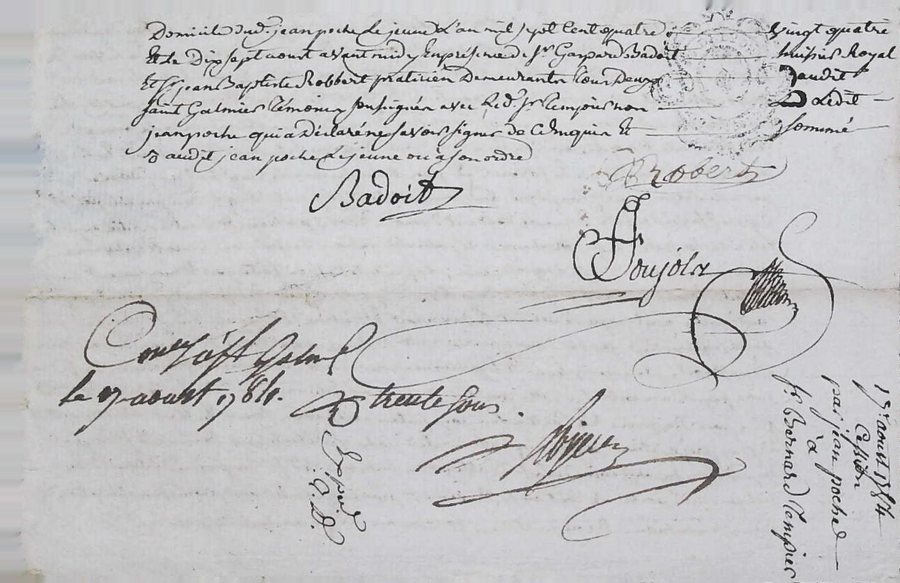 Domicile dud. jean poche le jeune L'an mil sept cent quatre vingt quatre
Et le dix sept aout avant midy En presence de Sr. Gaspard Badoit huissier Royal
Et Sr. jean Baptiste Robbert praticien demeurants tous deux audit
saint Galmier témoins soussignés avec led. Sr. tempier non Ledit
jean poche qui a déclaré ne savoir signer de ce Enquis Et sommé
audit jean poche le jeune ou a son ordre
Robert
Badoit
Ponjola
à St Galmier
le 17 aoust 1784.
trente sous.
Exped.
17e. aoust 1784
Cession
par jean poche
à
Sr. Bernard Tempier